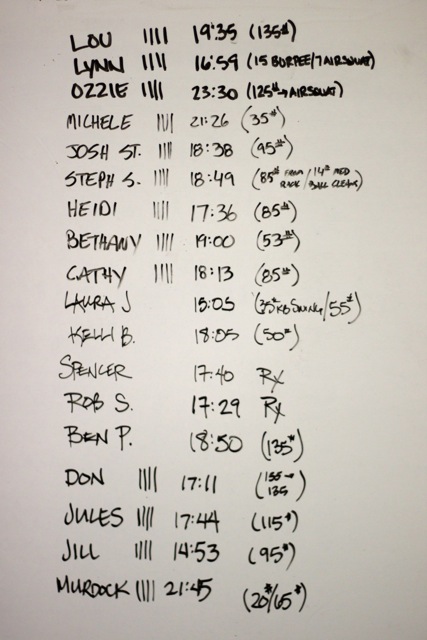 LOU |||| 19:35 (135#)
LYNN |||| 16:59 (15 BURPEE/7 AIRSQUAT)
OZZIE |||| 23:30 (125#→AIRSQUAT)
MICHELE |||| 21:26 (35#)
JOSH ST. |||| 18:38 (95#)
STEPH S. |||| 18:49 (85# FROM RACK / 14# MED BALL CLEANS)
HEIDI |||| 17:36 (85#)
BETHANY |||| 19:00 (53#)
CATHY |||| 18:13 (85#)
LAURA J 15:05 (35# KB SWING/55#)
KELLI B. 18:05 (50#)
SPENCER 17:40 RX
ROB S. 17:29 RX
BEN P. 18:50 (135#)
DON |||| 17:11 (155→135)
JULES |||| 17:44 (115#)
JILL |||| 14:53 (95#)
MURDOCK |||| 21:45 (20#/65#)